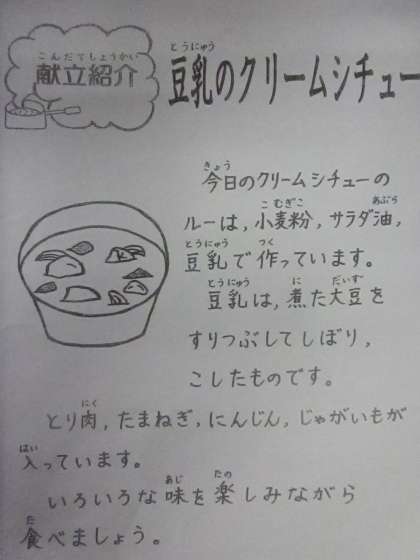 こんだてしょうかい
献立紹介
とうにゅう
豆乳のクリームシチュー
きょう
今日のクリームシチューの
こむぎこ あぶら
ルーは,小麦粉,サラダ油,
とうにゅう つく
豆乳で作っています。
とうにゅう に だいず
豆乳は,煮た大豆を
すりつぶしてしぼり,
こしたものです。
にく
とり肉,たまねぎ,にんじん,じゃがいもが
はい
入っています。
あじ たの
いろいろな味を楽しみながら
た
食べましょう。